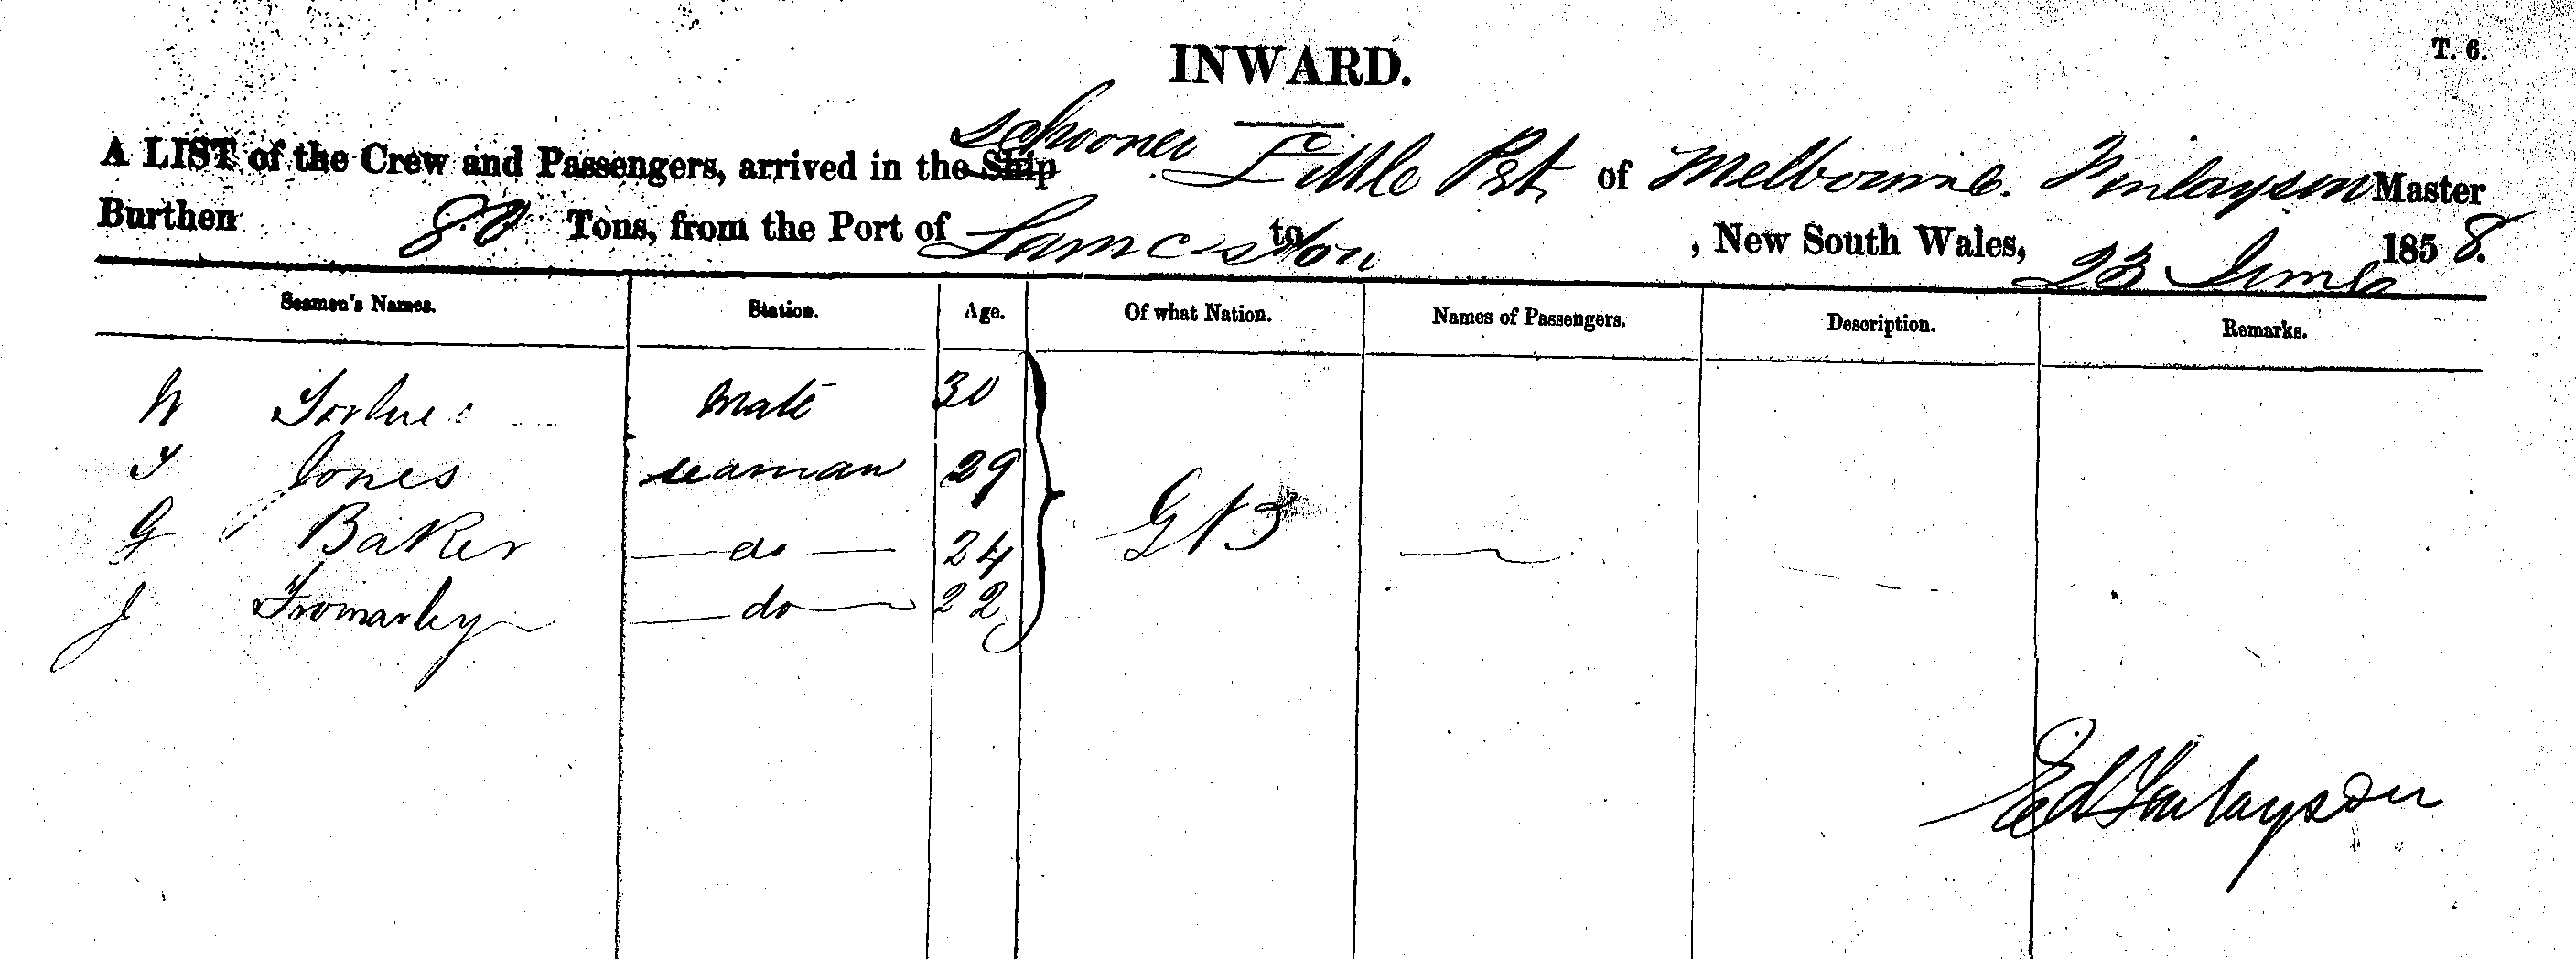 INWARD.
T. 6.
schooner
A LIST of the Crew and Passengers, arrived in the Ship Little Pet of Melbourne. Finlayson Master
Burthen 80 Tons, from the Port of Lamceston to , New South Wales, 23 June 1858.
Seamen's Names. Station. Age. Of what Nation. Names of Passengers. Description. Remarks.
W mate 30
T Jones seaman 29
G Baker do 24 G B
J Fromarley do 22
Ed Finlayson